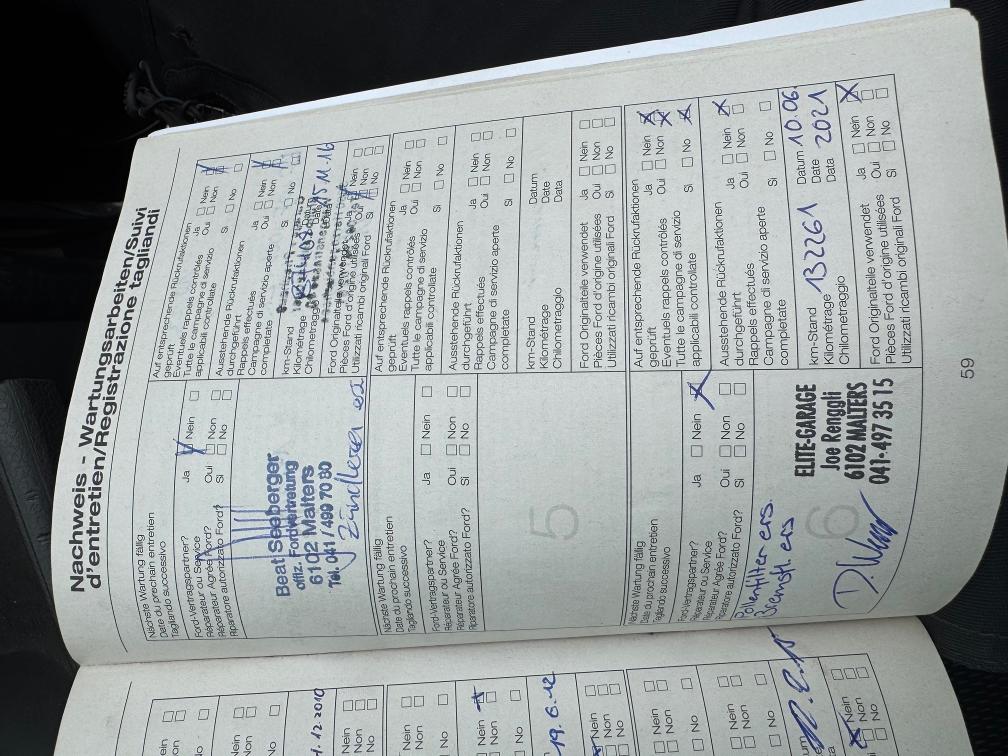 Nachweis - Wartungsarbeiten/Suivi
d'entretien/Registrazione tagliandi
Nächste Wartung fällig
Date du prochain entretien
Tagliando successivo
Ford-Vertragspartner?
Réparateur ou Service
Réparateur Agréé Ford?
Riparatore autorizzato Ford?
Ja Nein
Oui Non
Si No
Beat Seeberger
offiz. Fordvertretung
6102 Malters
Tel. 041 / 499 70 80
Auf entsprechende Rückrufaktionen
geprüft
Eventuels rappels contrôlés
Tutte le campagne di servizio
applicabili controllate
Ja Nein
Oui Non
Si No
Ausstehende Rückrufaktionen
durchgeführt
Rappels effectués
Campagne di servizio aperte
completate
Ja Nein
Oui Non
Si No
km-Stand
Kilométrage
Chilometraggio
Ford Originalteile verwendet
Pièces Ford d'origine utilisées
Utilizzati ricambi originali Ford
Nein
Oui Non
Si No
Nächste Wartung fällig
Date du prochain entretien
Tagliando successivo
Ford-Vertragspartner?
Réparateur ou Service
Réparateur Agréé Ford?
Riparatore autorizzato Ford?
Ja Nein
Oui Non
Si No
5
Auf entsprechende Rückrufaktionen
geprüft
Eventuels rappels contrôlés
Tutte le campagne di servizio
applicabili controllate
Ja Nein
Oui Non
Si No
Ausstehende Rückrufaktionen
durchgeführt
Rappels effectués
Campagne di servizio aperte
completate
Ja Nein
Oui Non
Si No
km-Stand Datum
Kilométrage Date
Chilometraggio Data
Ford Originalteile verwendet
Pièces Ford d'origine utilisées
Utilizzati ricambi originali Ford
Ja Nein
Oui Non
Si No
Nächste Wartung fällig
Date du prochain entretien
Tagliando successivo
Ford-Vertragspartner?
Réparateur ou Service
Réparateur Agréé Ford?
Riparatore autorizzato Ford?
Ja Nein
Oui Non
Si No
Pollenfilter ers.
6
ELITE-GARAGE
Joe Renggli
6102 MALTERS
041-497 35 15
Auf entsprechende Rückrufaktionen
geprüft
Eventuels rappels contrôlés
Tutte le campagne di servizio
applicabili controllate
Ja Nein
Oui Non
Si No
Ausstehende Rückrufaktionen
durchgeführt
Rappels effectués
Campagne di servizio aperte
completate
Ja Nein
Oui Non
Si No
km-Stand Datum 10.06.
Kilométrage 132261 Date 2021
Chilometraggio Data
Ford Originalteile verwendet
Pièces Ford d'origine utilisées
Utilizzati ricambi originali Ford
Ja Nein
Oui Non
Si No
59
Nein
Non
No
.12.2010
Nein
Non
No
19.6.12
Nein
Non
No